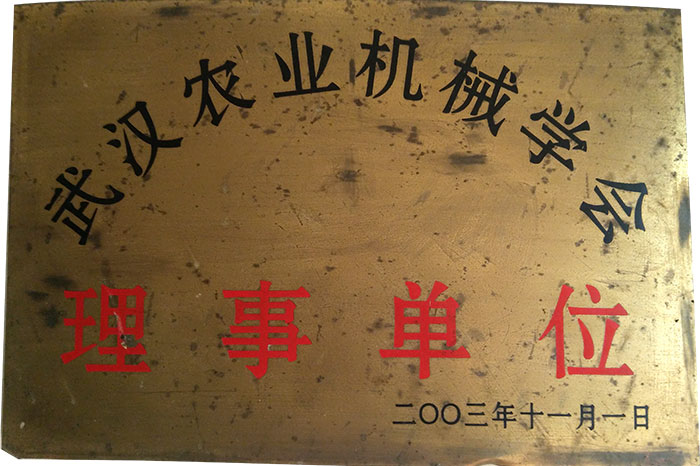 武汉农业机械学会
理事单位
二〇〇三年十一月一日